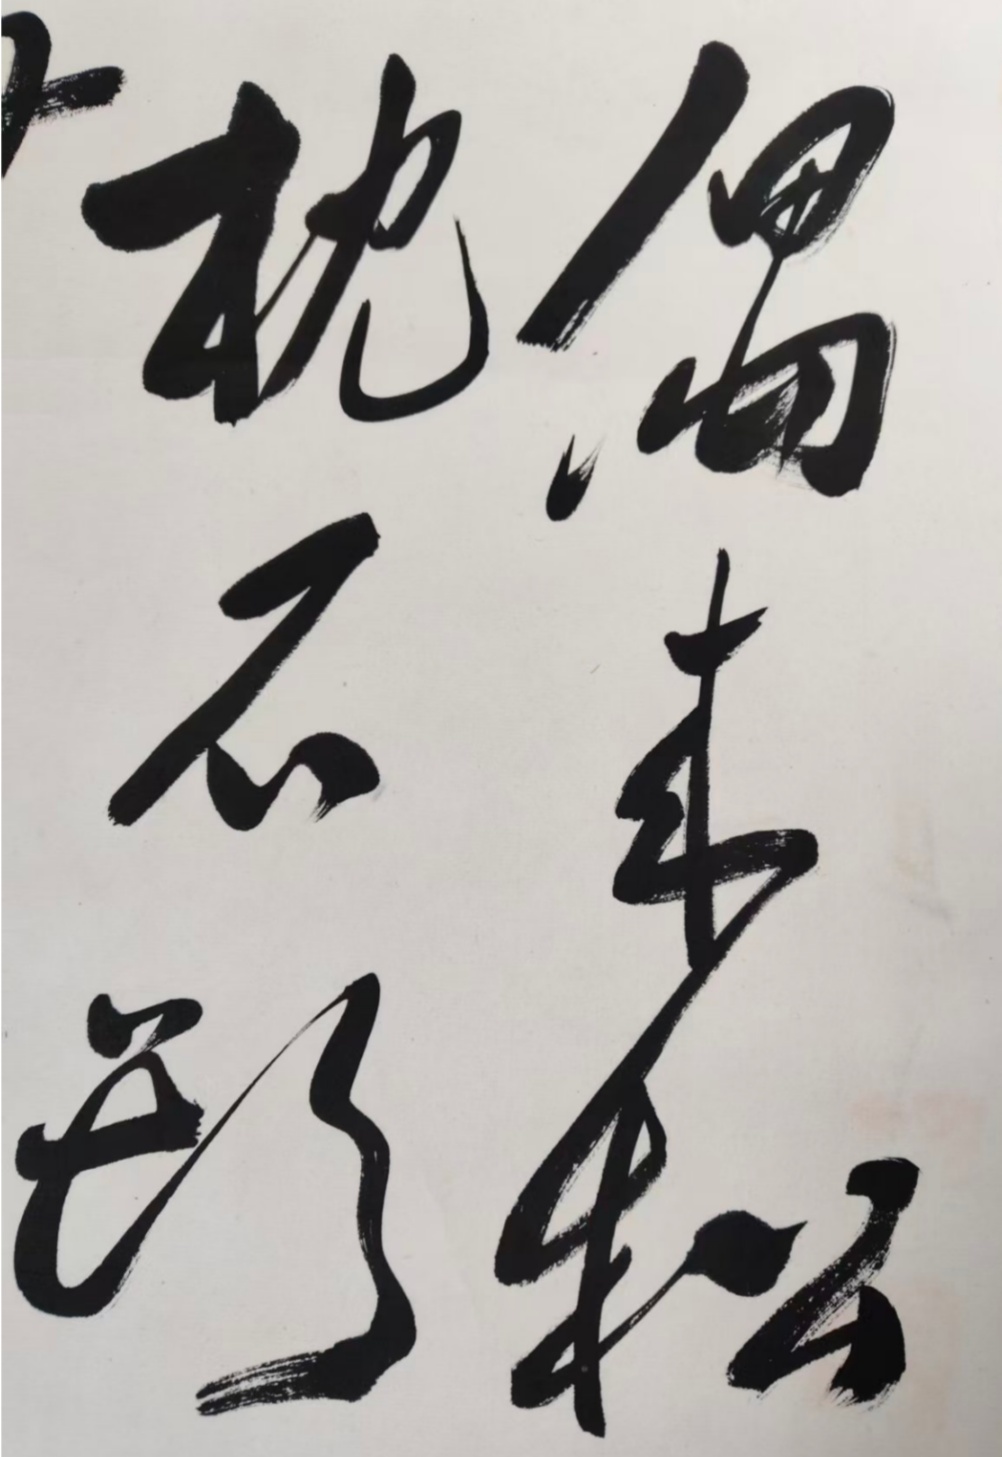 偶来松
枕石頭